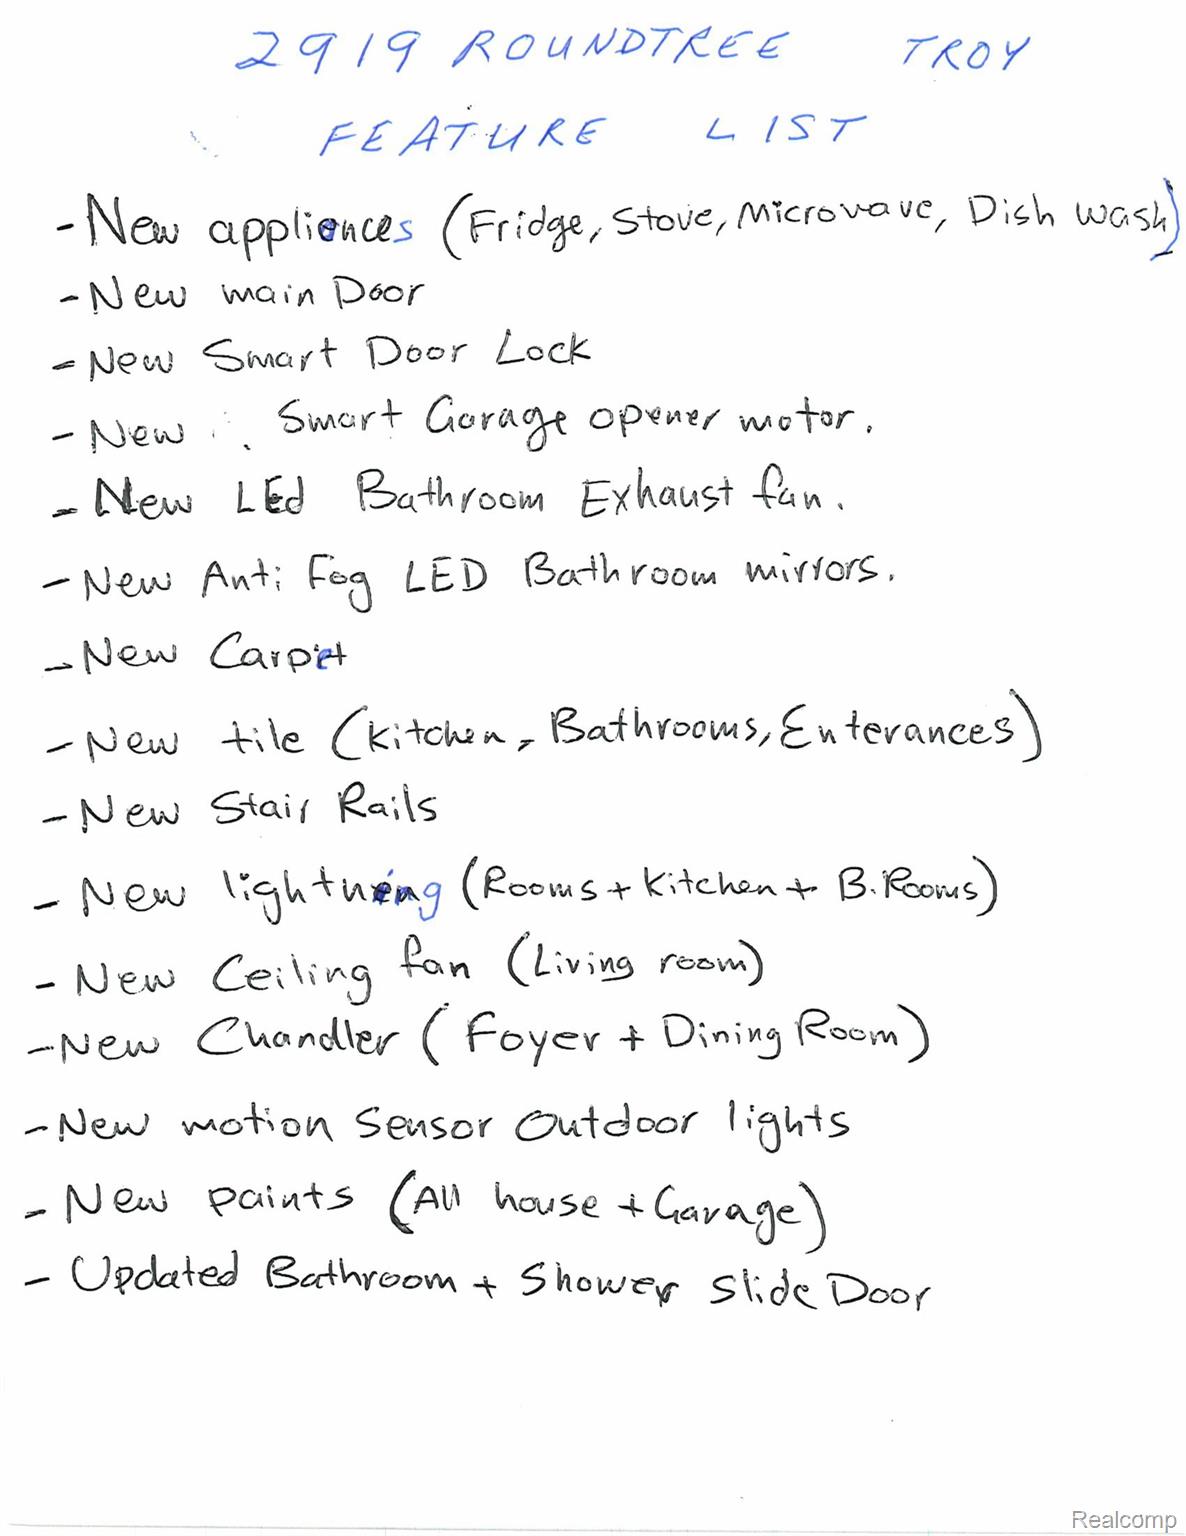 2919 ROUNDTREE TROY
FEATURE LIST
- New appliences (Fridge, Stove, Microvave, Dish wash)
- New main Door
- New Smart Door Lock
- New Smart Garage opener motor.
- New LEd Bathroom Exhaust fan.
- New Anti Fog LED Bathroom mirrors.
- New Carpet
- New tile (Kitchen, Bathrooms, Enterances)
- New Stair Rails
- New lightning (Rooms + Kitchen + B.Rooms)
- New Ceiling fan (Living room)
- New Chandler (Foyer + Dining Room)
- New motion Sensor Outdoor lights
- New paints (All house + Garage)
- Updated Bathroom + Shower Slide Door
Realcomp